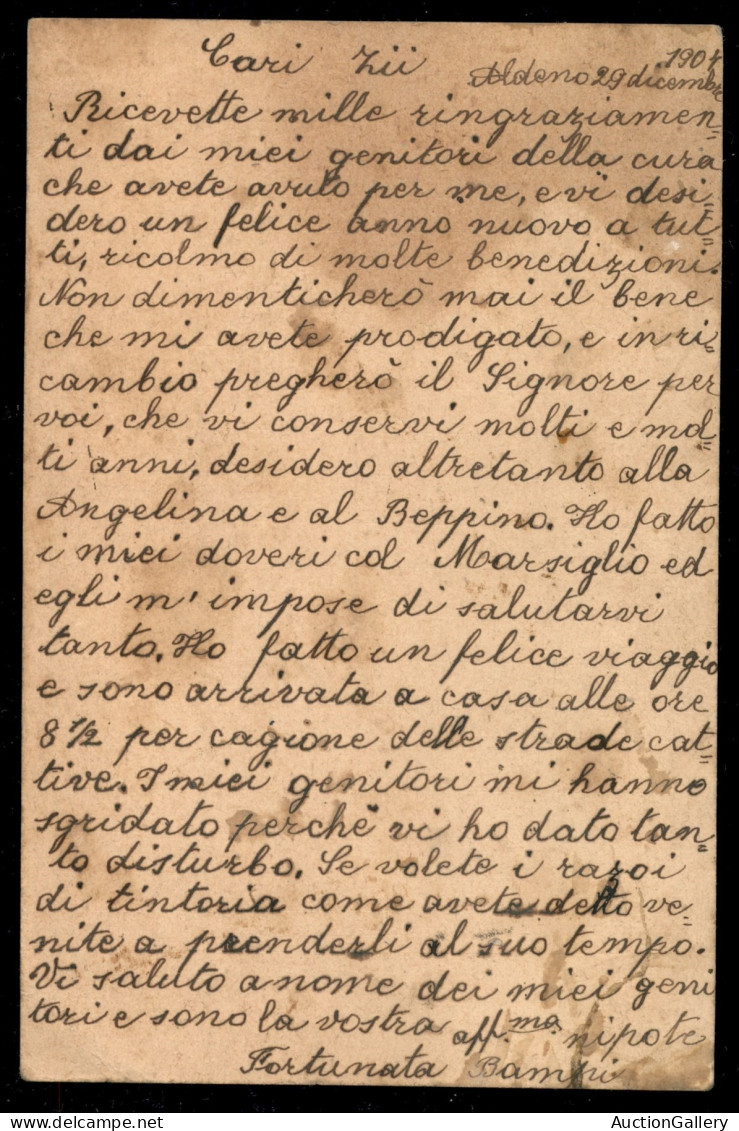 Cari Zii
1904
Aldeno 29 dicembre
Ricevette mille ringraziamen=
ti dai miei genitori della cura
che avete avuto per me, e vi desi=
dero un felice anno nuovo a tut=
ti, ricolmo di molte benedizioni.
Non dimenticherò mai il bene
che mi avete prodigato, e in ri=
cambio pregherò il Signore per
voi, che vi conservi molti e mol=
ti anni, desidero altretanto alla
Angelina e al Beppino. Ho fatto
i miei doveri col Marsiglio ed
egli m'impose di salutarvi
tanto. Ho fatto un felice viaggio
e sono arrivata a casa alle ore
8 1/2 per cagione delle strade cat=
tive. I miei genitori mi hanno
sgridato perchè vi ho dato tan=
to disturbo. Se volete i razoi
di tintoria come avete detto ve=
nite a prenderli al suo tempo.
Vi saluto a nome dei miei geni
tori e sono la vostra aff.ma nipote
Fortunata Bampi
AuctionGallery